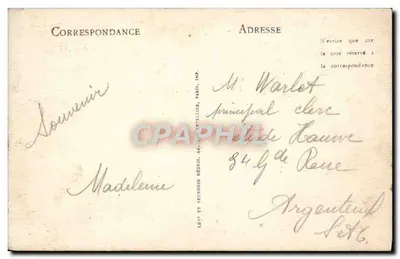 CORRESPONDANCE
ADRESSE
N'écrire que sur
le côté réservé à
la correspondance
Souvenir
Madeleine
Mr Warlot
principal clerc
de Hauve
84 Gde Roue
Argenteuil
S et O.
CPAPHIL